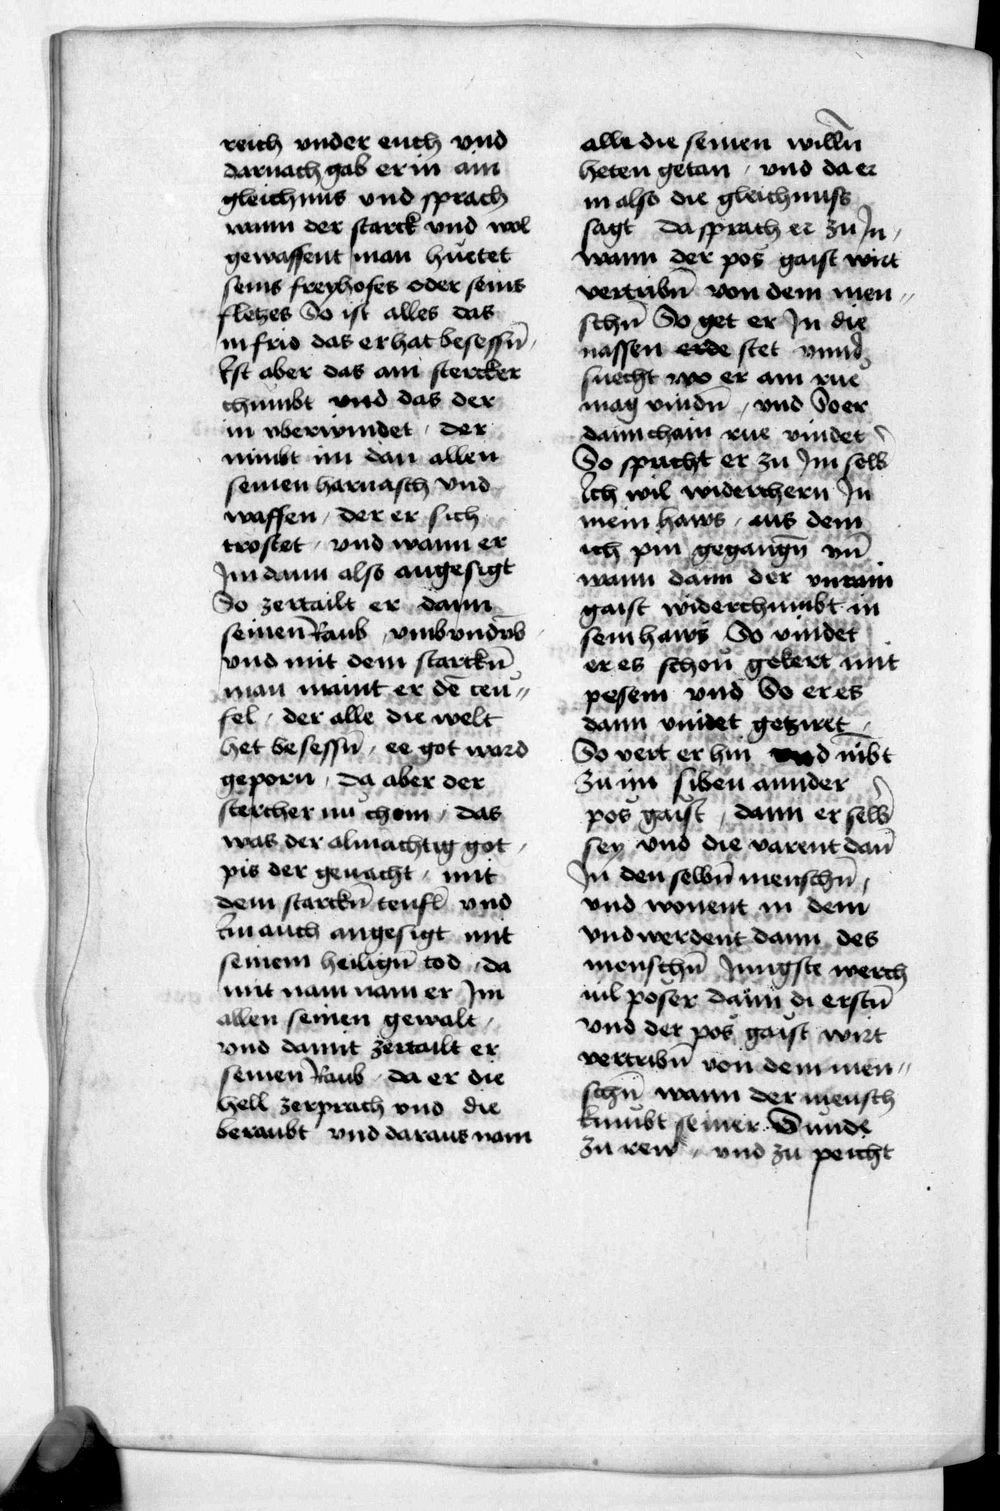 reich vnder euch vnd
darnach gab er in ain
gleichnus vnd sprach
wann der starck vnd wol
gewaffent man huetet
seins freyhofes oder seins
fletzes So ist alles das
in frid das er hat besessn̄
Ist aber das ain stercker
chumbt vnd das der
in vberwindet / der
nimbt im dan allen
seinen harnasch vnd
waffen / der er sich
trostet / vnd wann er
Im dann also angesigt
So zertailt er dann
seinen Raub /
vnd mit dem starckn̄
man maint er dē teu〃
fel / der alle die welt
het besessn̄ / ee got ward
geporn / da aber der
stercher nu chom / das
was der almachtig got /
pis der genacht / mit
dem starckn̄ teufl vnd
Im auch angesigt mit
seinem heilign̄ tod / da
mit nam nam er Im
allen seinen gewalt /
vnd damit zertailt er
seinen Raub / da er die
hell zerprach vnd die
beraubt vnd daraus nam
alle die seinen willn̄
heten getan / vnd da er
in also die gleichnuss
sagt da sprach er zu In /
wann der pos gaist wirt
vertribn̄ von dem men〃
schn̄ So get er In die
nassen erde stet vnnd
suecht wo er ain rue
mag vindn̄ / vnd So er
dann chain rue vindet
So spricht er zu Im selb
Ich wil widerchern In
mein haws / aus dem
ich pin gegangn̄ vn̄
wann dann der vnrain
gaist widerchumbt in
sein haws So vindet
er es schon gekert mit
pesem vnd So er es
dann vindet getziret /
So vert er hin vnd nībt
zu im siben annder
pos gaist / dann er selb
sey vnd die varent dan̄
In den selbn̄ menschn̄ /
vnd wonent in dem
vnd werdent dann des
menschn̄ Jungste werch
uil poser dann di erstn̄
vnd der pos gaist wirt
vertribn̄ von dem men〃
schn̄ wann der mensch
kumbt seiner Sunde
zu rew / vnd zu peicht